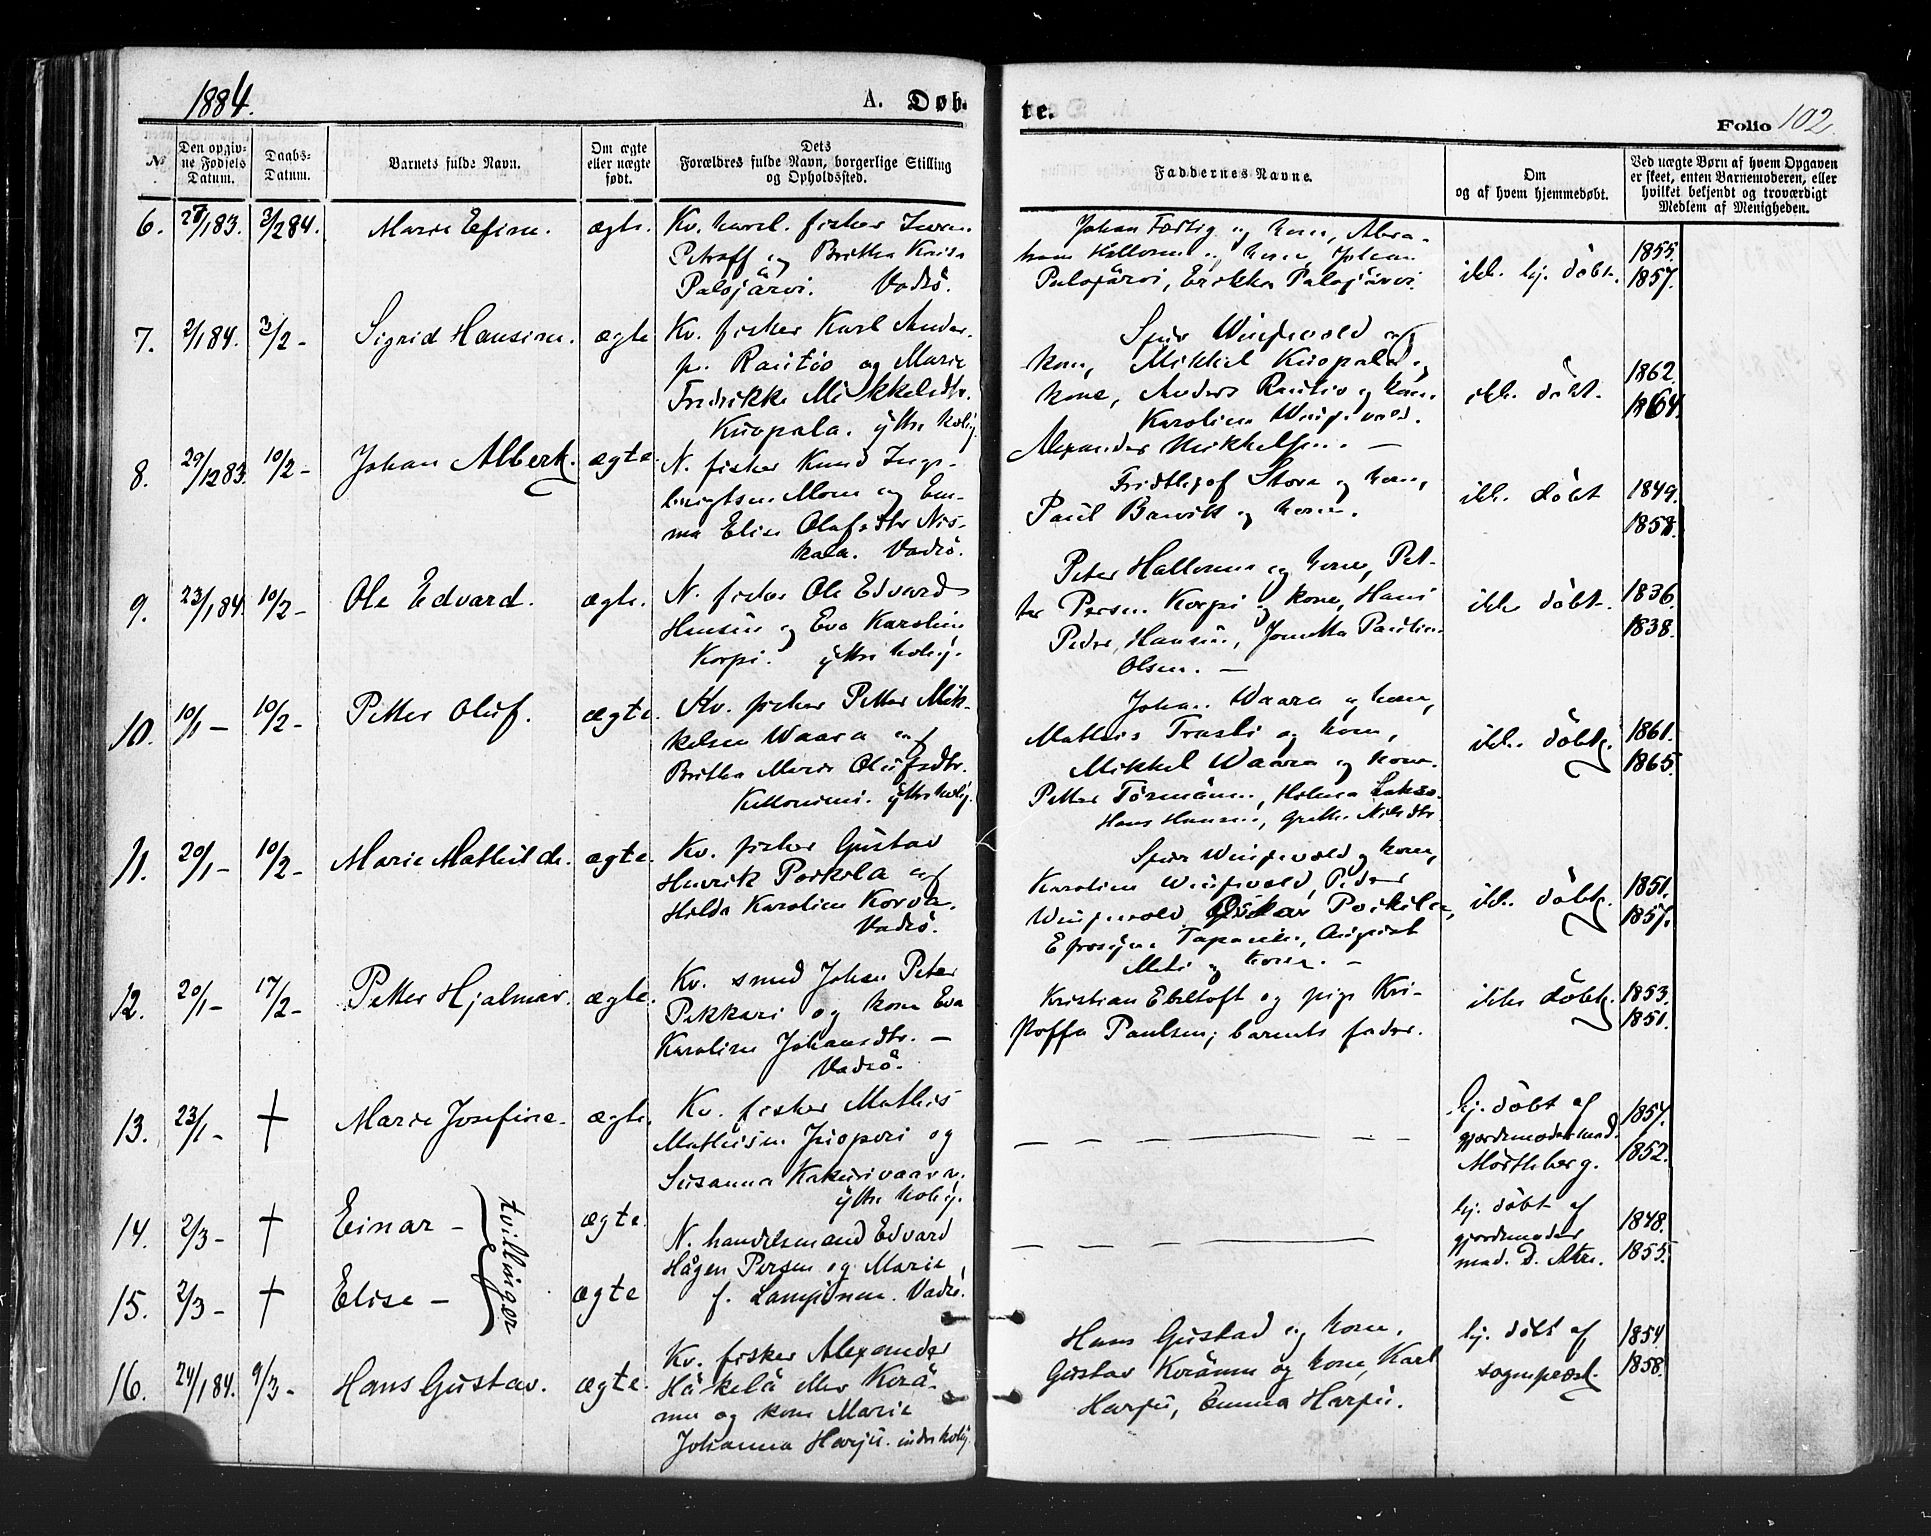 1884.
A. Døb-
te.
Folio 102.
№
Den opgiv-
ne Fødsels
Datum.
Daabs-
Datum.
Barnets fulde Navn.
Om ægte
eller uægte
født.
Dets
Forældres fulde Navn, borgerlige Stilling
og Opholdssted.
Faddernes Navne.
Om
og af hvem hjemmedøbt.
Ved uægte Børn af hvem Opgaven
er skeet, enten Barnemoderen, eller
hvilket bekjendt og troværdigt
Medlem af Menigheden.
6. 27/1 83. 3/2 84. Marie Efine. ægte.
Kv. karel. fisker Iwan
Petroff og Britha Kaisa
Palojärvi. Vadsö.
Johan Færtig og kone, Abra-
ham Kellonen og kone, Johan
Palojärvi, Erikka Palojärvi.
ikke hj. döbt.
1855.
1857.
7. 2/1 84. 3/2 - Sigrid Hansine. ægte
Kv. fisker Karl Ander-
s. Rautio og Marie
Fredrikke Mikkelsdtr.
Kuopala. yttre kolig.
kone, Mikkel Kuopala og
kone, Anders Rautio og kone
Karoline
Alexander Mikkelsen. —
ikke döbt.
1862.
1864.
8. 29/12 83. 10/2 - Johan Albert. ægte.
N. fisker Knud Inge-
brigtsen Moen og Em-
ma Elise Olafsdtr Nis-
kala. Vadsö.
Fridthjof Stora og kone,
Paul Barvik og kone.
ikke döbt
1849.
1858.
9. 23/1 84. 10/2 - Ole Edvard. ægte.
N. fisker Ole Edvard
Hansen og Eva Karoline
Korpi. yttre kolig.
Peter Hallonen og kone, Pet-
ter Persen Korpi og kone, Hans
Peder Hansen, Jonetta Pauline
Olsen. —
ikke döbt.
1836.
1838.
10. 10/1 - 10/2 - Petter Oluf. ægte.
Kv. fisker Petter Mik-
kelsen Waara og
Britha Marie Olufsdtr.
Kelloniemi. yttre kolig.
Johan Waara og kone,
Mathis Trasti og kone,
Mikkel Waara og kone.
Petter Törmänen, Hilma
Hans Hansen, Grethe Nilsdtr
ikke döbt.
1861.
1865.
11. 20/1 - 10/2 - Marie Mathilde. ægte.
Kv. fisker Gustav
Henrik Poikela og
Hilda Karoline Korva.
Vadsö.
og kone,
Karoline Peder
Oskar Poikela,
August
og kone. —
ikke döbt.
1851.
1857.
12. 20/1 - 17/2 - Petter Hjalmar. ægte.
Kv. smed Johan Peter
Pekkari og kone Eva
Karoline Johansdtr. —
Vadsö.
Kristian Ebeltoft og pige Kri-
stoffa Paulsen; barnets fader.
ikke döbt.
1853.
1851.
13. 23/1 - † Marie Josefine. ægte.
Kv. fisker Mathis
Mathisen Juopperi og
Susanna Kakurivaara.
yttre kolig.
— — — — — —
hj. döbt af
gjordemoder mad.
Mörthberg.
1857.
1852.
14. 2/3 - † Einar - ægte.
15. 2/3 - † Elise - ægte
tvillinger
N. handelsmand Edvard
Hågen Persen og Marie
f. Lampinen. Vadsö.
— — — — —
hj. döbt af
gjordemoder
mad. D.
1848.
1855.
16. 24/1 84. 9/3 - Hans Gustav. ægte.
Kv. fisker Alexander
Häkelä eller Korä-
nen og kone Marie
Johanna Harju. indre kolig.
Hans Gustad og kone,
Gustav Koränen og kone, Karl
Harju, Emma Harju.
hj. döbt af
sognepræst.
1854
1858.